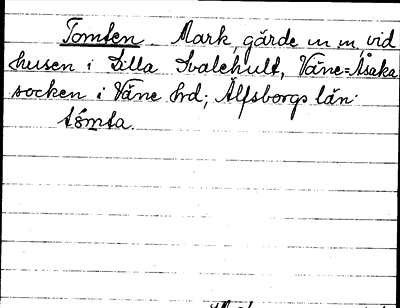 Tomten. Mark, gärde m m, vid
husen i Lilla Svalehult, Väne=Åsaka
socken i Väne hrd; Älfsborgs län.
tåmta.